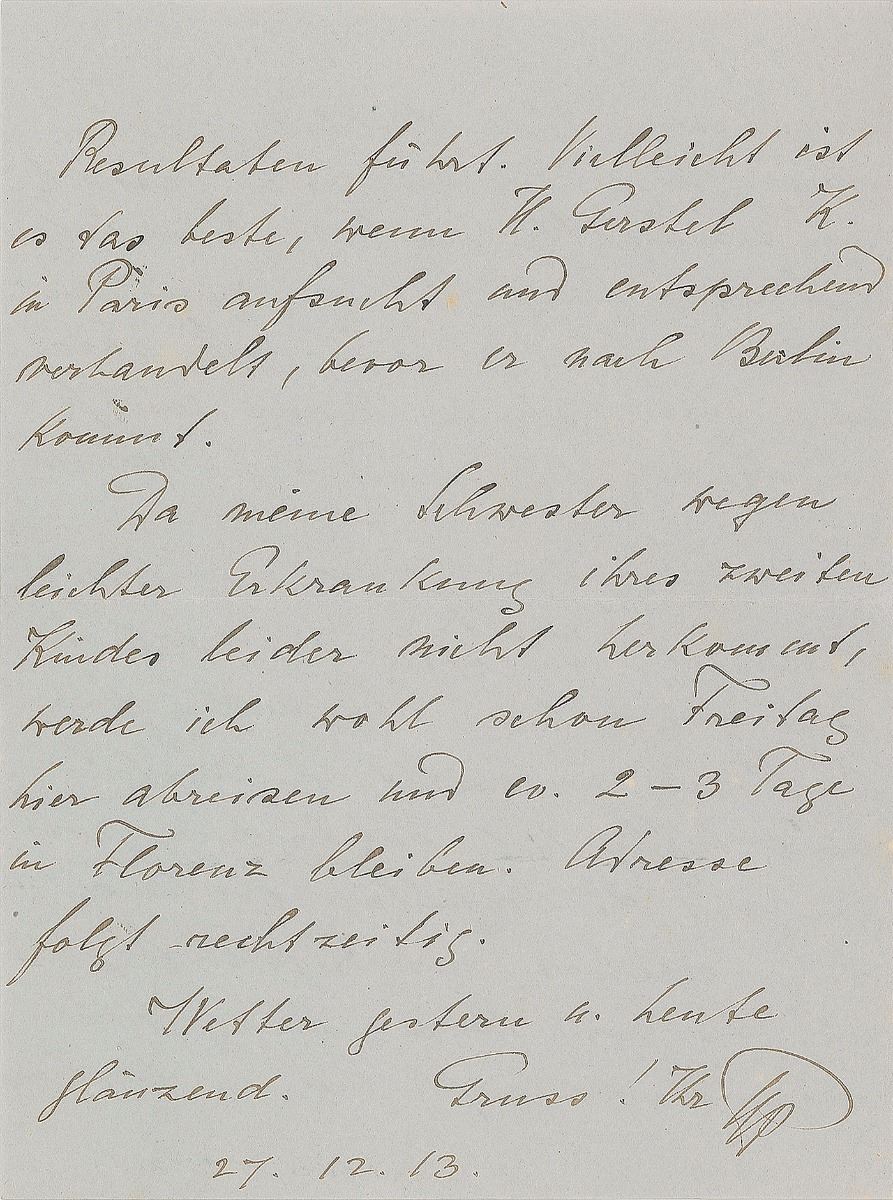 Resultaten führt. Vielleicht ist
es das beste, wenn H. Gerstel K.
in Paris aufsucht und entsprechend
verhandelt, bevor er nach Berlin
kommt.
Da meine Schwester wegen
leichter Erkrankung ihres zweiten
Kindes leider nicht herkommt,
werde ich wohl schon Freitag
hier abreisen und ev. 2-3 Tage
in Florenz bleiben. Adresse
folgt rechtzeitig.
Wetter gestern u. heute
glänzend. Gruss! Ihr
27. 12. 13.